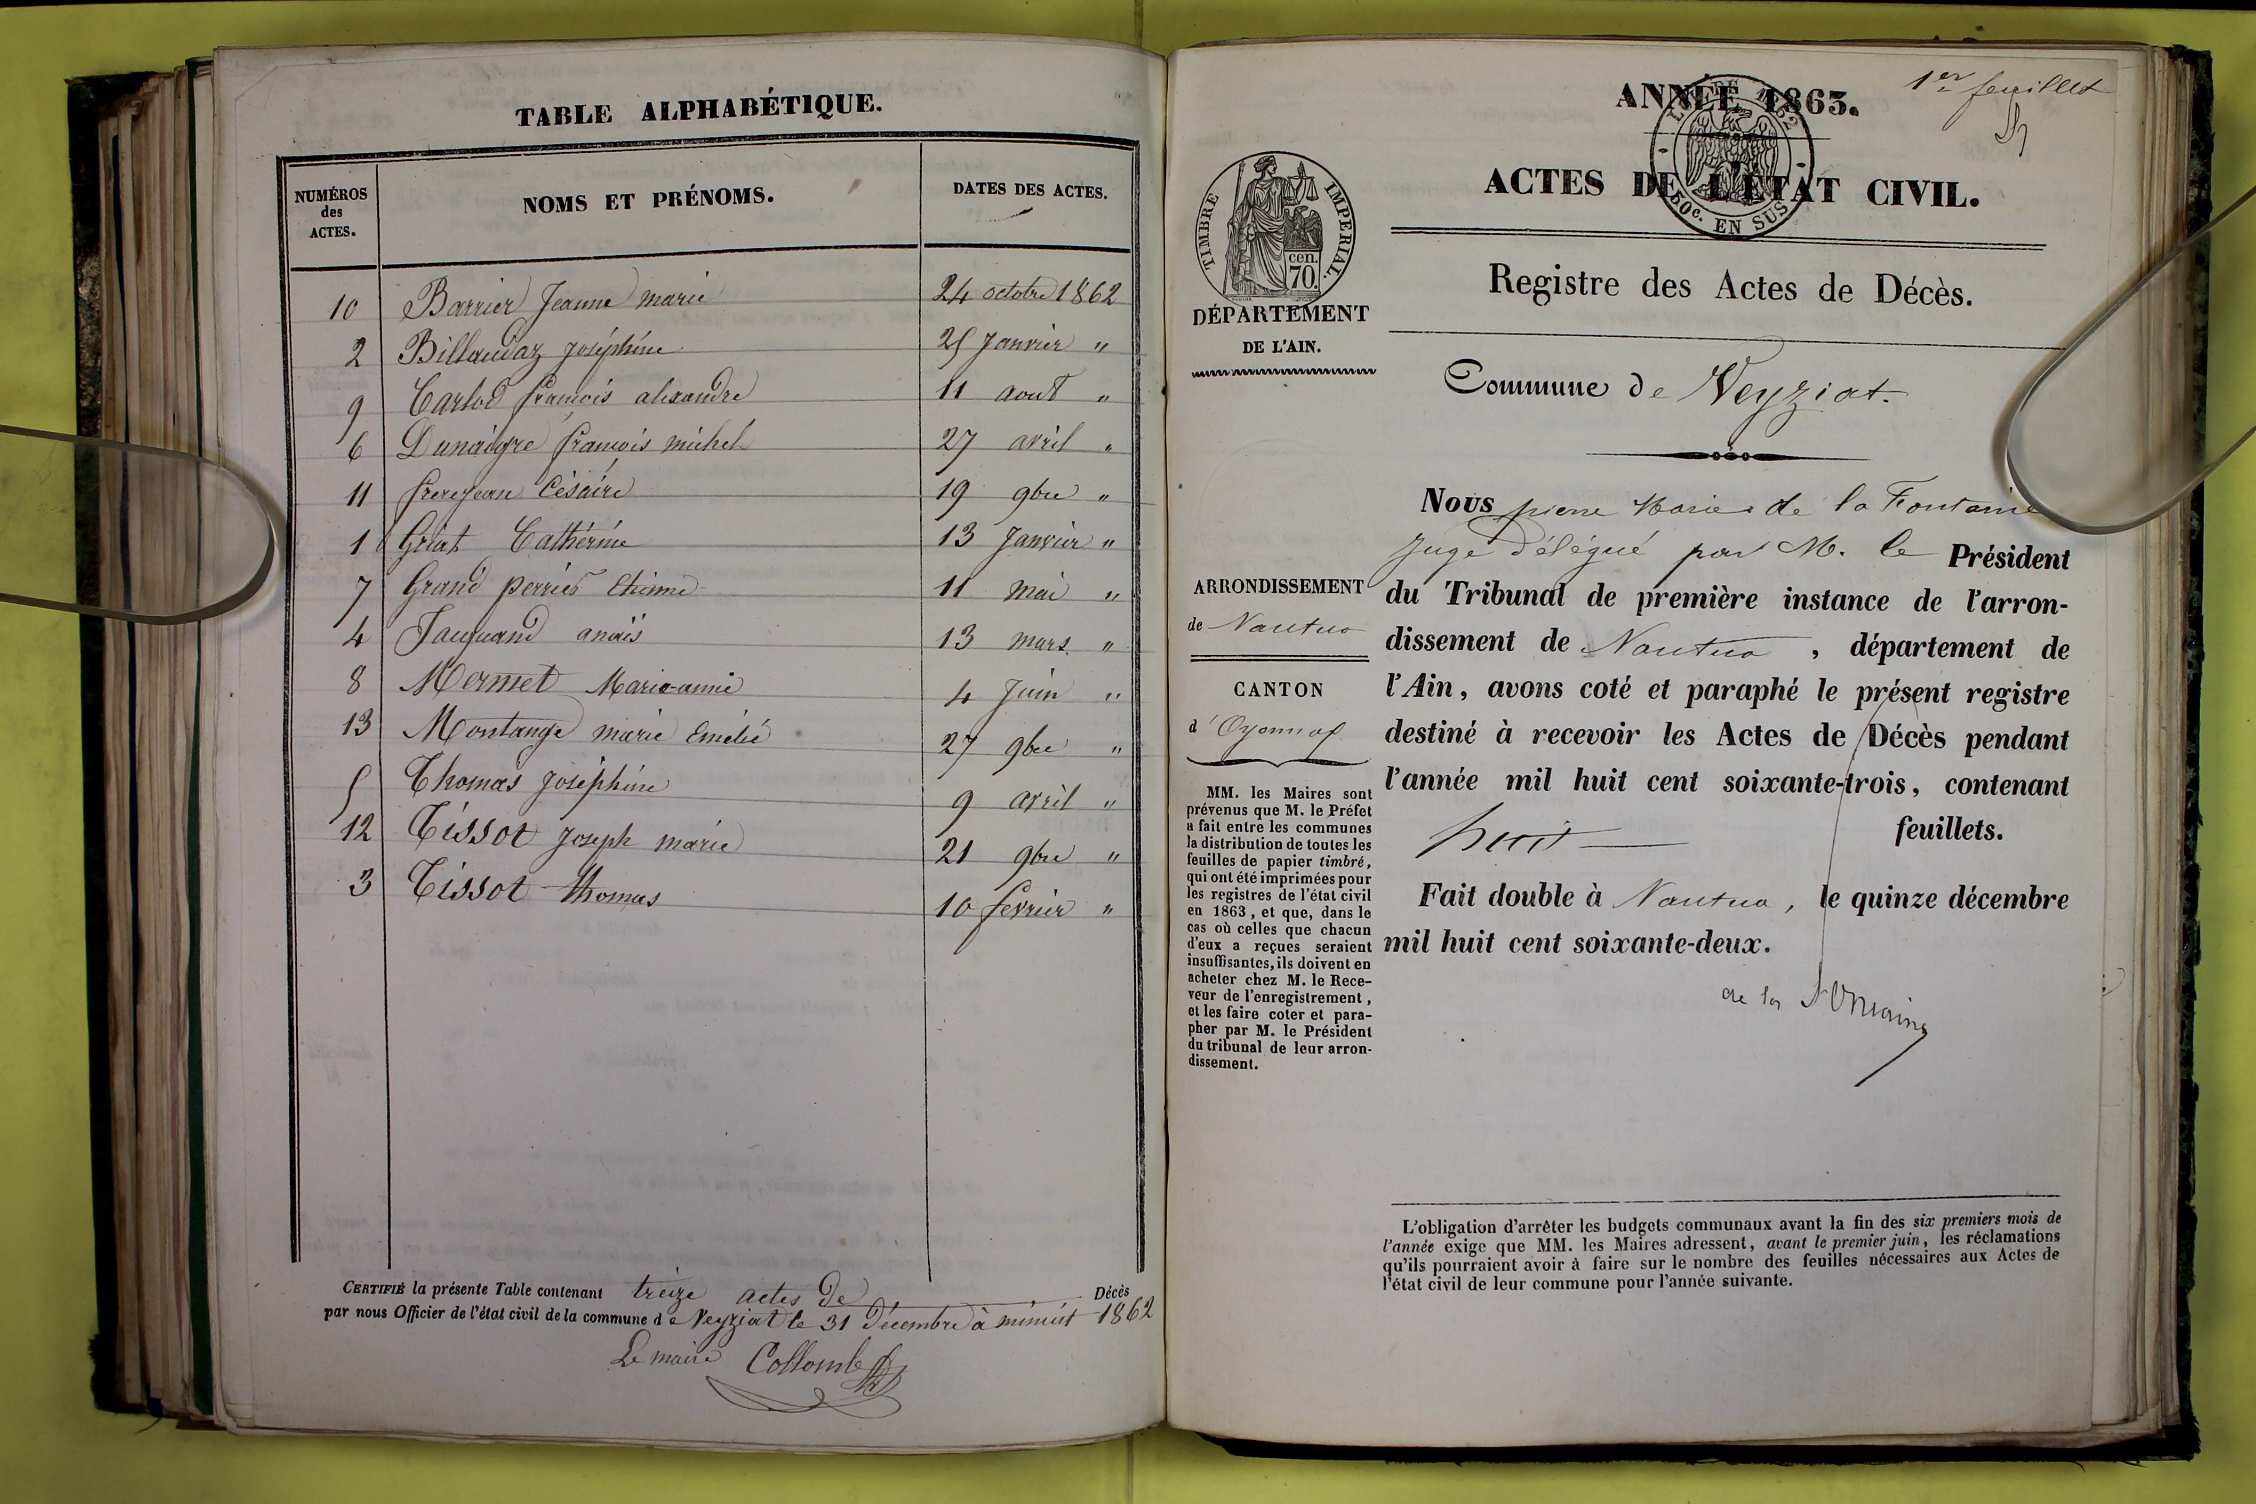 TABLE ALPHABÉTIQUE.
NUMÉROS des ACTES. NOMS ET PRÉNOMS. DATES DES ACTES.
10 Barrier Jeanne marie 24 octobre 1862
2 Billaudaz joséphine 25 Janvier "
9 Carlod françois alexandre 11 aout "
6 Dunaigre françois michel 27 avril "
11 frerejean Césaire 19 9bre "
1 Griat Cathérine 13 Janvier "
7 Grand perrier Etienne 11 mai "
4 Jacquand anaïs 13 mars "
8 Mermet Marie-annie 4 Juin "
13 Montange marie Emélié 27 9bre "
5 Thomas joséphine 9 avril "
12 Tissot joseph marie 21 9bre "
3 Tissot thomas 10 fevrier "
CERTIFIÉ la présente Table contenant treize actes de Décès
par nous Officier de l'état civil de la commune de Veyziat le 31 Décembre à minuit 1862
Le maire Collomb
1er feuillet
ANNÉE 1863.
TIMBRE IMPERIAL.
cen.
70.
50c. EN SUS
ACTES DE L'ÉTAT CIVIL.
DÉPARTEMENT
DE L'AIN.
Registre des Actes de Décès.
Commune de Veyziat.
Nous pierre Marie de la Fontaine
Juge délégué par M. le Président
du Tribunal de première instance de l'arron-
dissement de Nantua, département de
l'Ain, avons coté et paraphé le présent registre
destiné à recevoir les Actes de Décès pendant
l'année mil huit cent soixante-trois, contenant
huit feuillets.
Fait double à Nantua, le quinze décembre
mil huit cent soixante-deux.
de la Fontaine
ARRONDISSEMENT
de Nantua
CANTON
d'Oyonnax
MM. les Maires sont
prévenus que M. le Préfet
a fait entre les communes
la distribution de toutes les
feuilles de papier timbré,
qui ont été imprimées pour
les registres de l'état civil
en 1863, et que, dans le
cas où celles que chacun
d'eux a reçues seraient
insuffisantes, ils doivent en
acheter chez M. le Rece-
veur de l'enregistrement,
et les faire coter et para-
pher par M. le Président
du tribunal de leur arron-
dissement.
L'obligation d'arrêter les budgets communaux avant la fin des six premiers mois de
l'année exige que MM. les Maires adressent, avant le premier juin, les réclamations
qu'ils pourraient avoir à faire sur le nombre des feuilles nécessaires aux Actes de
l'état civil de leur commune pour l'année suivante.